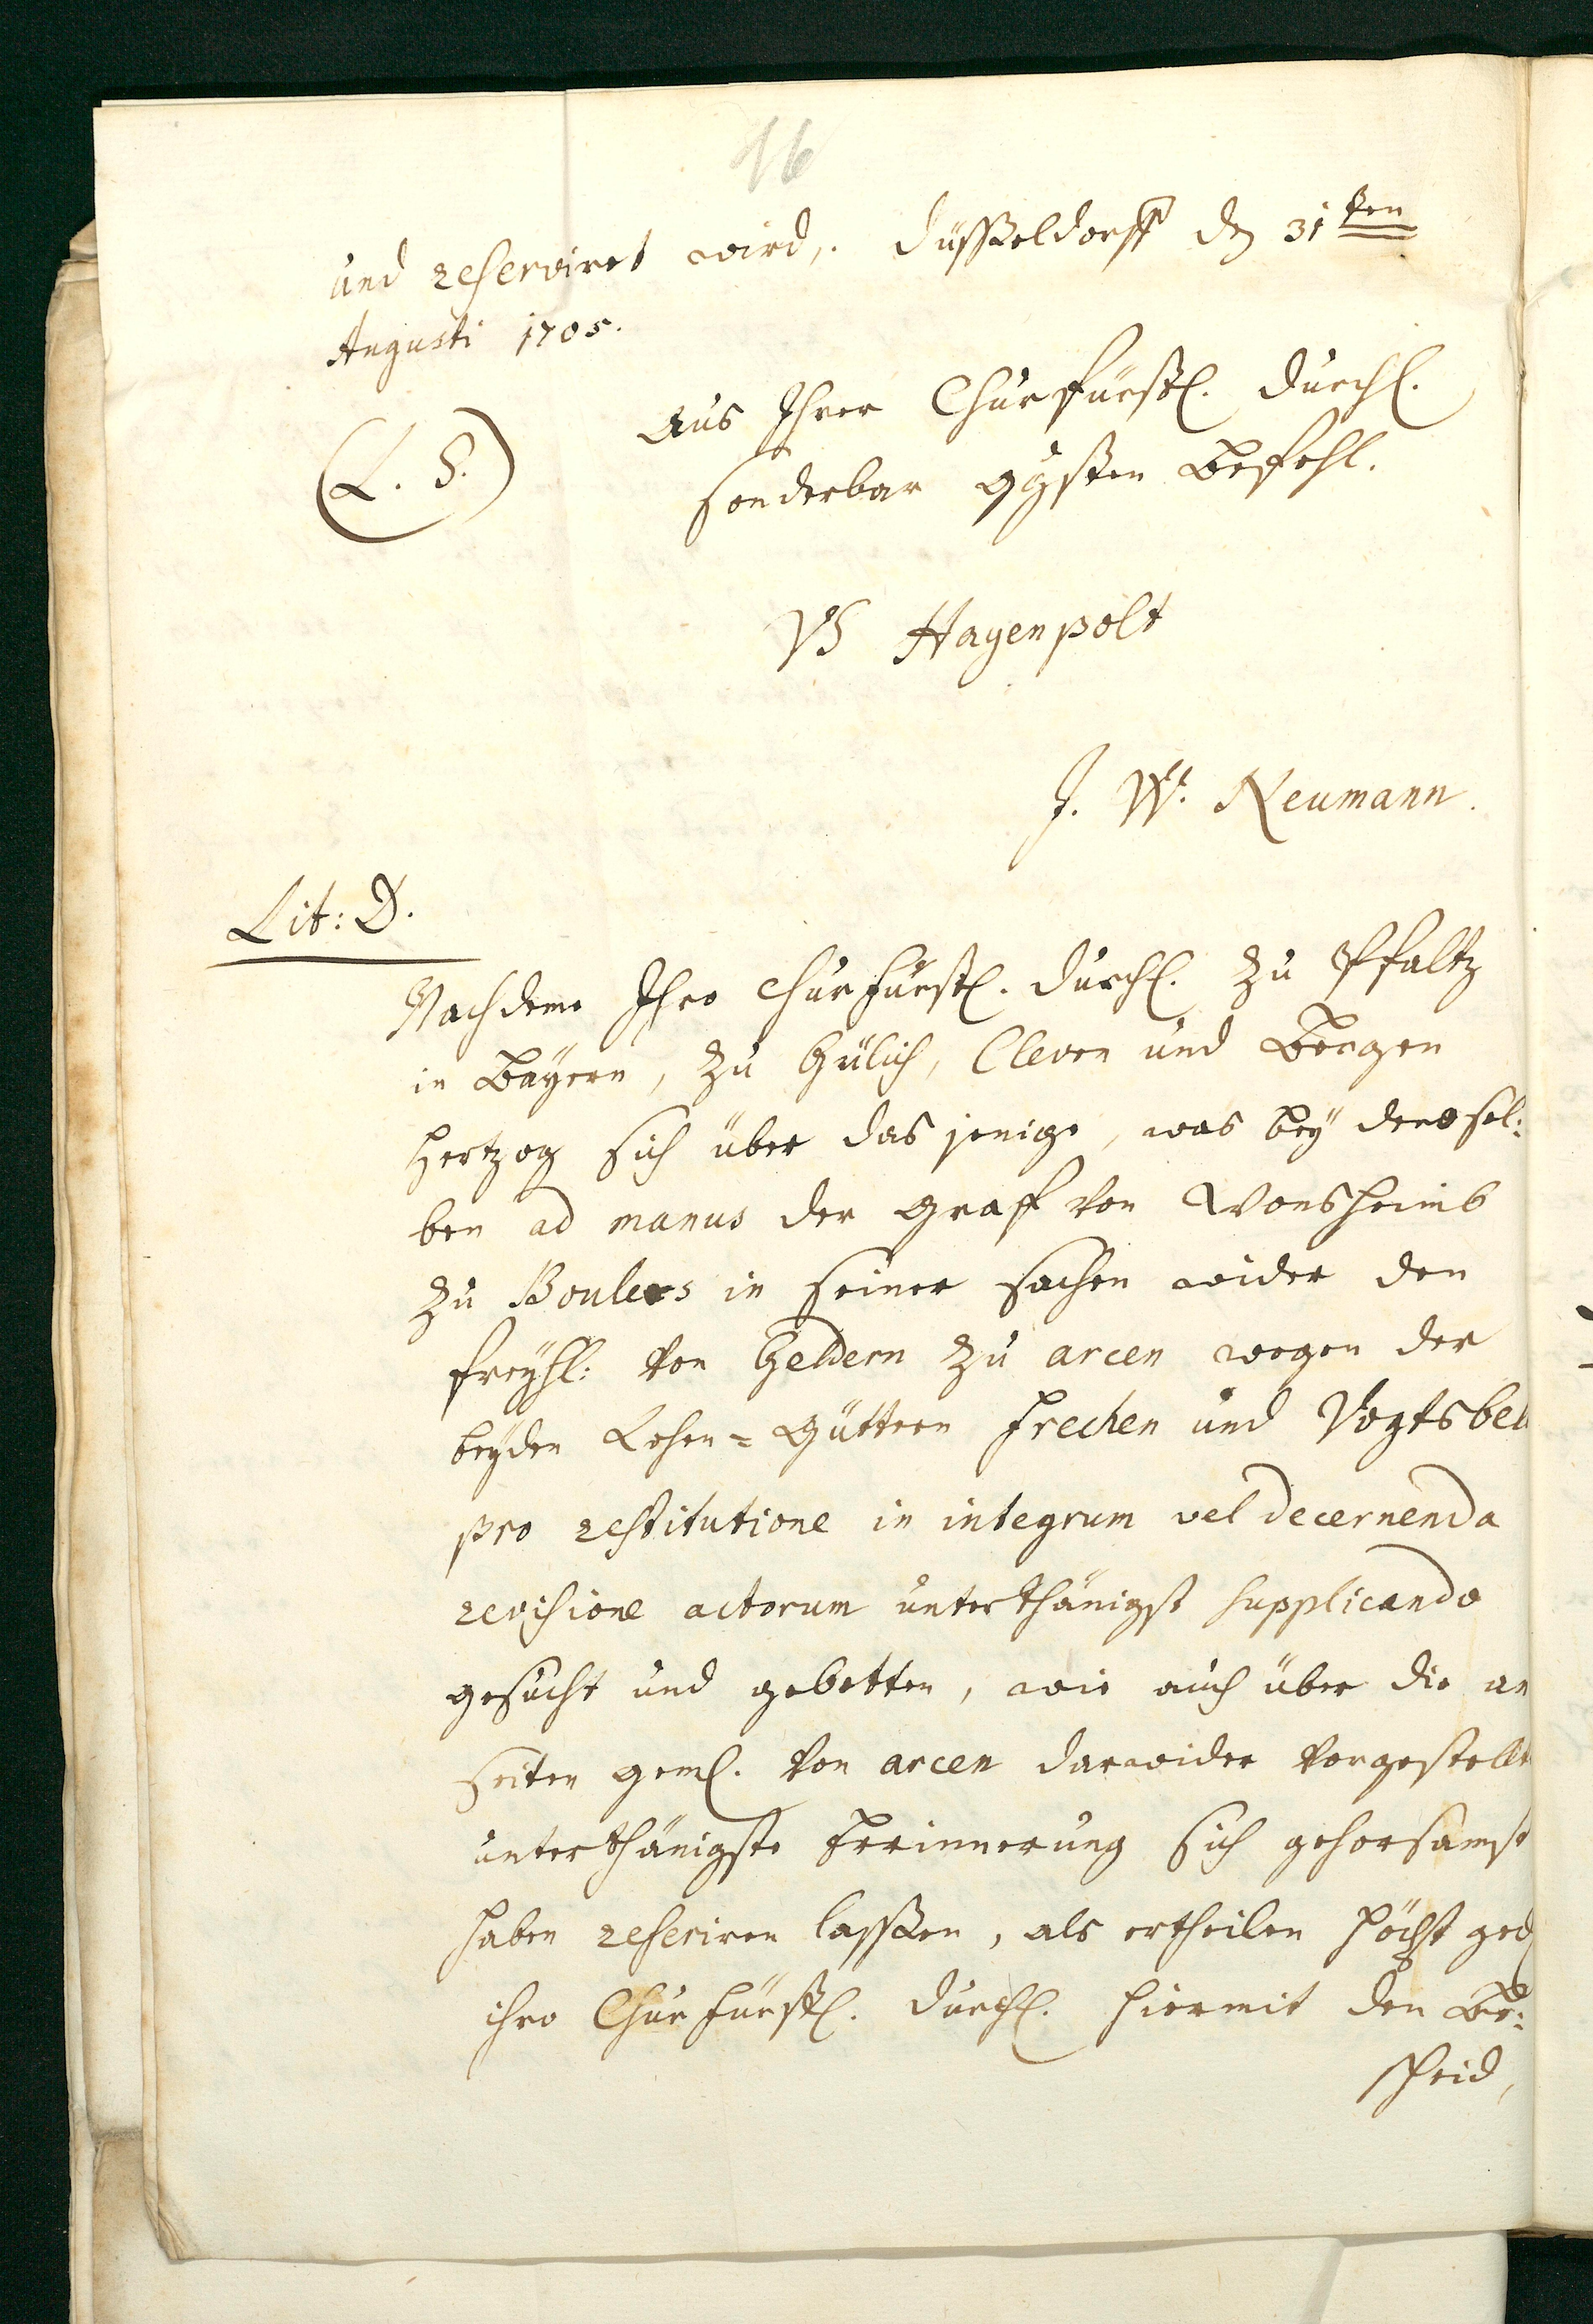 16
und reserviret wird,. Düsseldorff den 31ten
Augusti 1705.
Aus Ihrer Churfürstl. Durchl.
(L. S.)
sonderbar ggsten Befehl.
VS Hagenpolt
J. W. Neumann.
Lit: D.
Nachdeme Ihro Churfürstl. Durchl. zu Pfaltz
in Bayern, zu Gülich, Cleven und Bergen
Hertzog sich über das jenige, was bey denensel:
ben ad manus der Graff von Wonsheimb
zu Boulers in seiner sachen wider den
freyhl: von Geldern zu arcen wegen der
beyden Lehen=Güttern frechen und Vogtsbell
pro restitutione in integrum vel decernenda
revisione actorum unterthänigst supplicando
gesucht und gebetten, wie auch über die an
seiten geml. von arcen darwider vorgestellte
unterthänigste Erinnerung sich gehorsamst
haben referiren lassen, als ertheilen höchst ged
ihro Churfürstl. Durchl. hiermit den Be:
scheid,